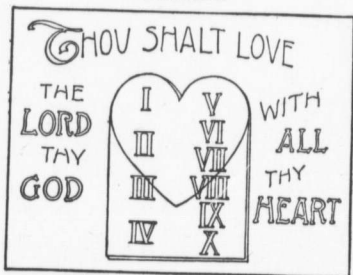 THOU SHALT LOVE
THE
LORD
THY
GOD
I
II
III
IV
V
VI
VII
VIII
IX
X
WITH
ALL
THY
HEART